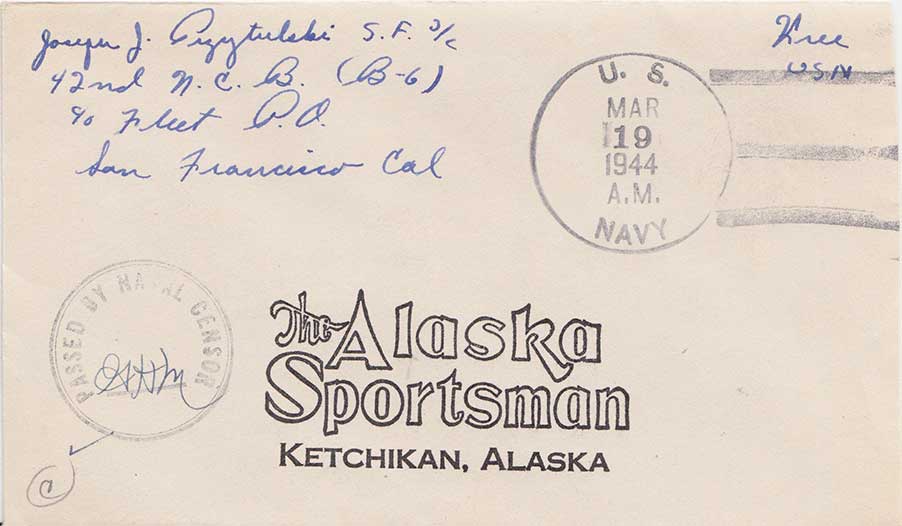 Joseph J. Przytulski S.F. 3/c
42nd N.C.B. (B-6)
c/o Fleet P.O.
San Francisco Cal
Free
USN
U. S.
MAR
19
1944
A.M.
NAVY
PASSED BY NAVAL CENSOR
The Alaska
Sportsman
KETCHIKAN, ALASKA
C